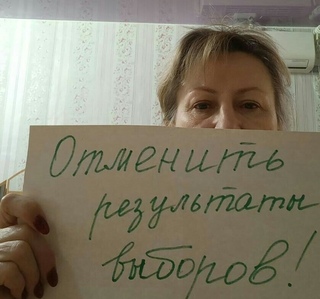 Отменить
результаты
выборов!